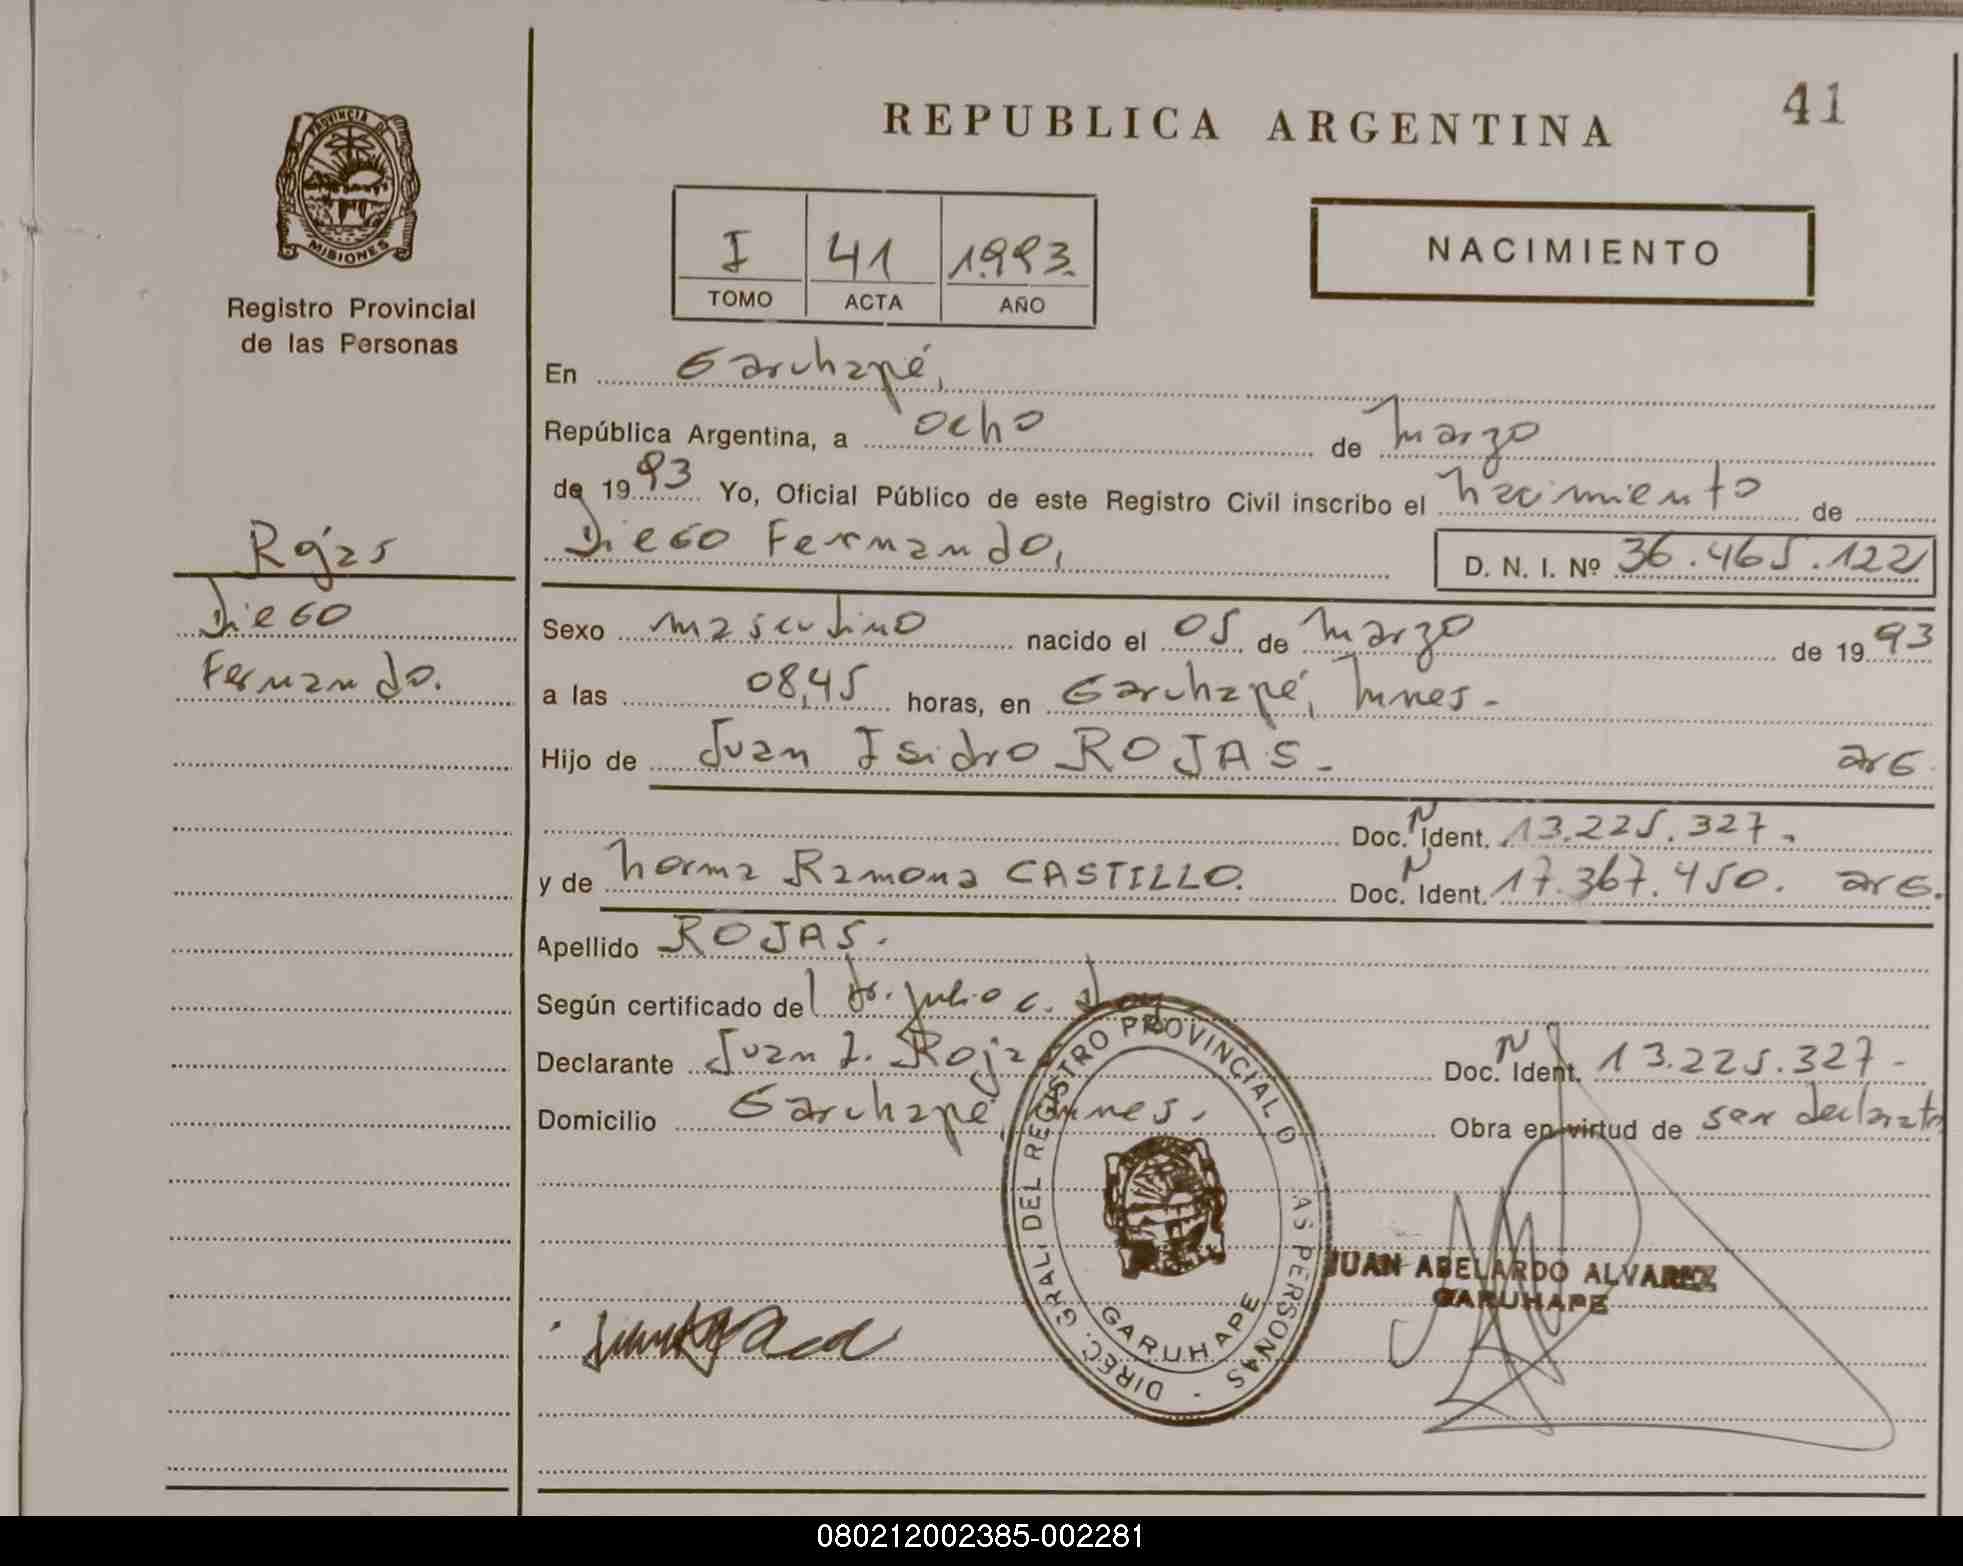 REPUBLICA ARGENTINA
41
PROVINCIA DE
MISIONES
Registro Provincial
de las Personas
I
41
1993.
TOMO
ACTA
AÑO
NACIMIENTO
En Garuhapé,
República Argentina, a ocho de marzo
de 1993 Yo, Oficial Público de este Registro Civil inscribo el nacimiento de
Diego Fernando,
D. N. I. Nº 36.465.122
Rojas
Diego
Fernando.
Sexo masculino nacido el 05 de marzo de 1993
a las 08,45 horas, en Garuhapé, Mnes.-
Hijo de Juan Isidro ROJAS.- arg.
Doc. N Ident. 13.225.327.
y de Norma Ramona CASTILLO. Doc. N Ident. 17.367.450. arg.
Apellido ROJAS.
Según certificado del Dr. Julio C.
Declarante Juan I. Rojas Doc. N Ident. 13.225.327.-
Domicilio Garuhapé, Mnes. Obra en virtud de ser declarante
DIREC. GRAL. DEL REGISTRO PROVINCIAL D LAS PERSONAS -
GARUHAPE
JUAN ABELARDO ALVAREZ
GARUHAPE
080212002385-002281